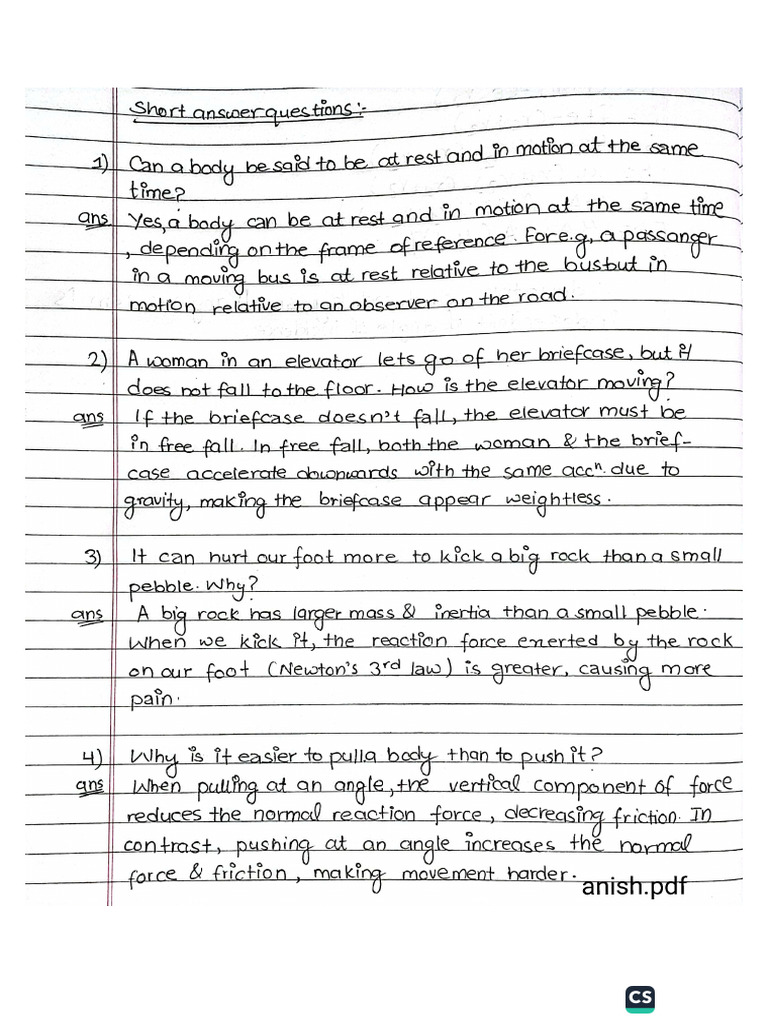 Short answer questions:-
1) Can a body be said to be at rest and in motion at the same
time?
ans Yes, a body can be at rest and in motion at the same time
, depending on the frame of reference. For e.g, a passanger
in a moving bus is at rest relative to the bus but in
motion relative to an observer on the road.
2) A woman in an elevator lets go of her briefcase, but it
does not fall to the floor. How is the elevator moving?
ans If the briefcase doesn't fall, the elevator must be
in free fall. In free fall, both the woman & the brief-
case accelerate downwards with the same accⁿ. due to
gravity, making the briefcase appear weightless.
3) It can hurt our foot more to kick a big rock than a small
pebble. Why?
ans A big rock has larger mass & inertia than a small pebble.
When we kick it, the reaction force exerted by the rock
on our foot (Newton's 3rd law) is greater, causing more
pain.
4) Why is it easier to pull a body than to push it?
ans When pulling at an angle, the vertical component of force
reduces the normal reaction force, decreasing friction. In
contrast, pushing at an angle increases the normal
force & friction, making movement harder.
anish.pdf
CS